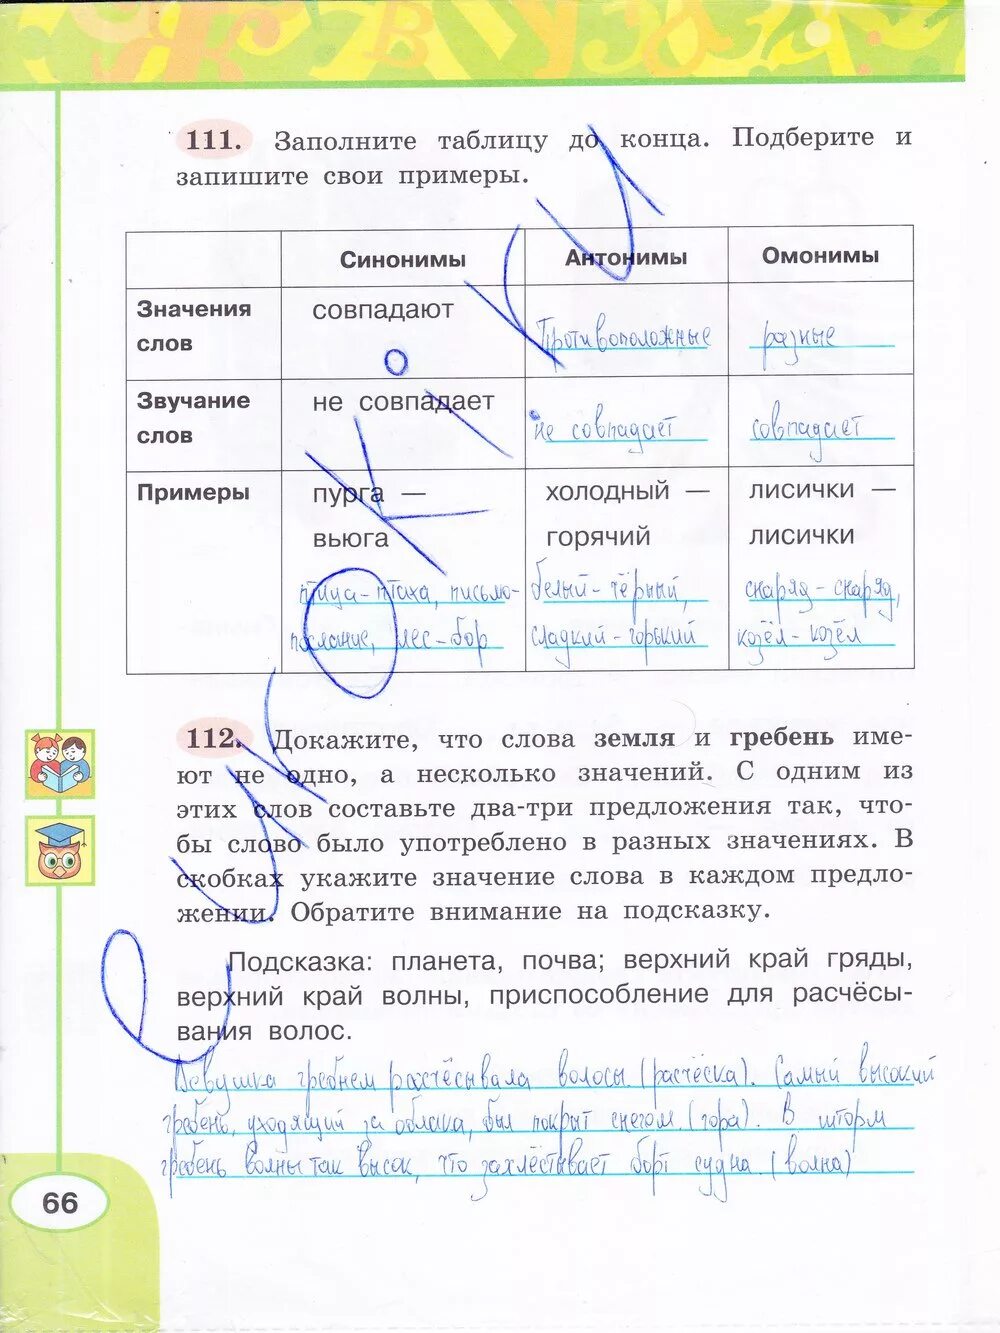 111. Заполните таблицу до конца. Подберите и
запишите свои примеры.
Синонимы Антонимы Омонимы
Значения слов совпадают Противоположные разные
Звучание слов не совпадает не совпадает совпадает
Примеры пурга — холодный — лисички —
вьюга горячий лисички
птица-птаха, письмо- белый-чёрный, снаряд-снаряд,
послание, лес-бор сладкий-горький козёл-козёл
112. Докажите, что слова земля и гребень име-
ют не одно, а несколько значений. С одним из
этих слов составьте два-три предложения так, что-
бы слово было употреблено в разных значениях. В
скобках укажите значение слова в каждом предло-
жении. Обратите внимание на подсказку.
Подсказка: планета, почва; верхний край гряды,
верхний край волны, приспособление для расчёсы-
вания волос.
Девушка гребнем расчёсывала волосы (расчёска). Самый высокий
гребень, уходящий за облака, был покрыт снегом (гора). В шторм
гребень волны так высок, что захлёстывает борт судна. (волна)
66
е уроки.ru